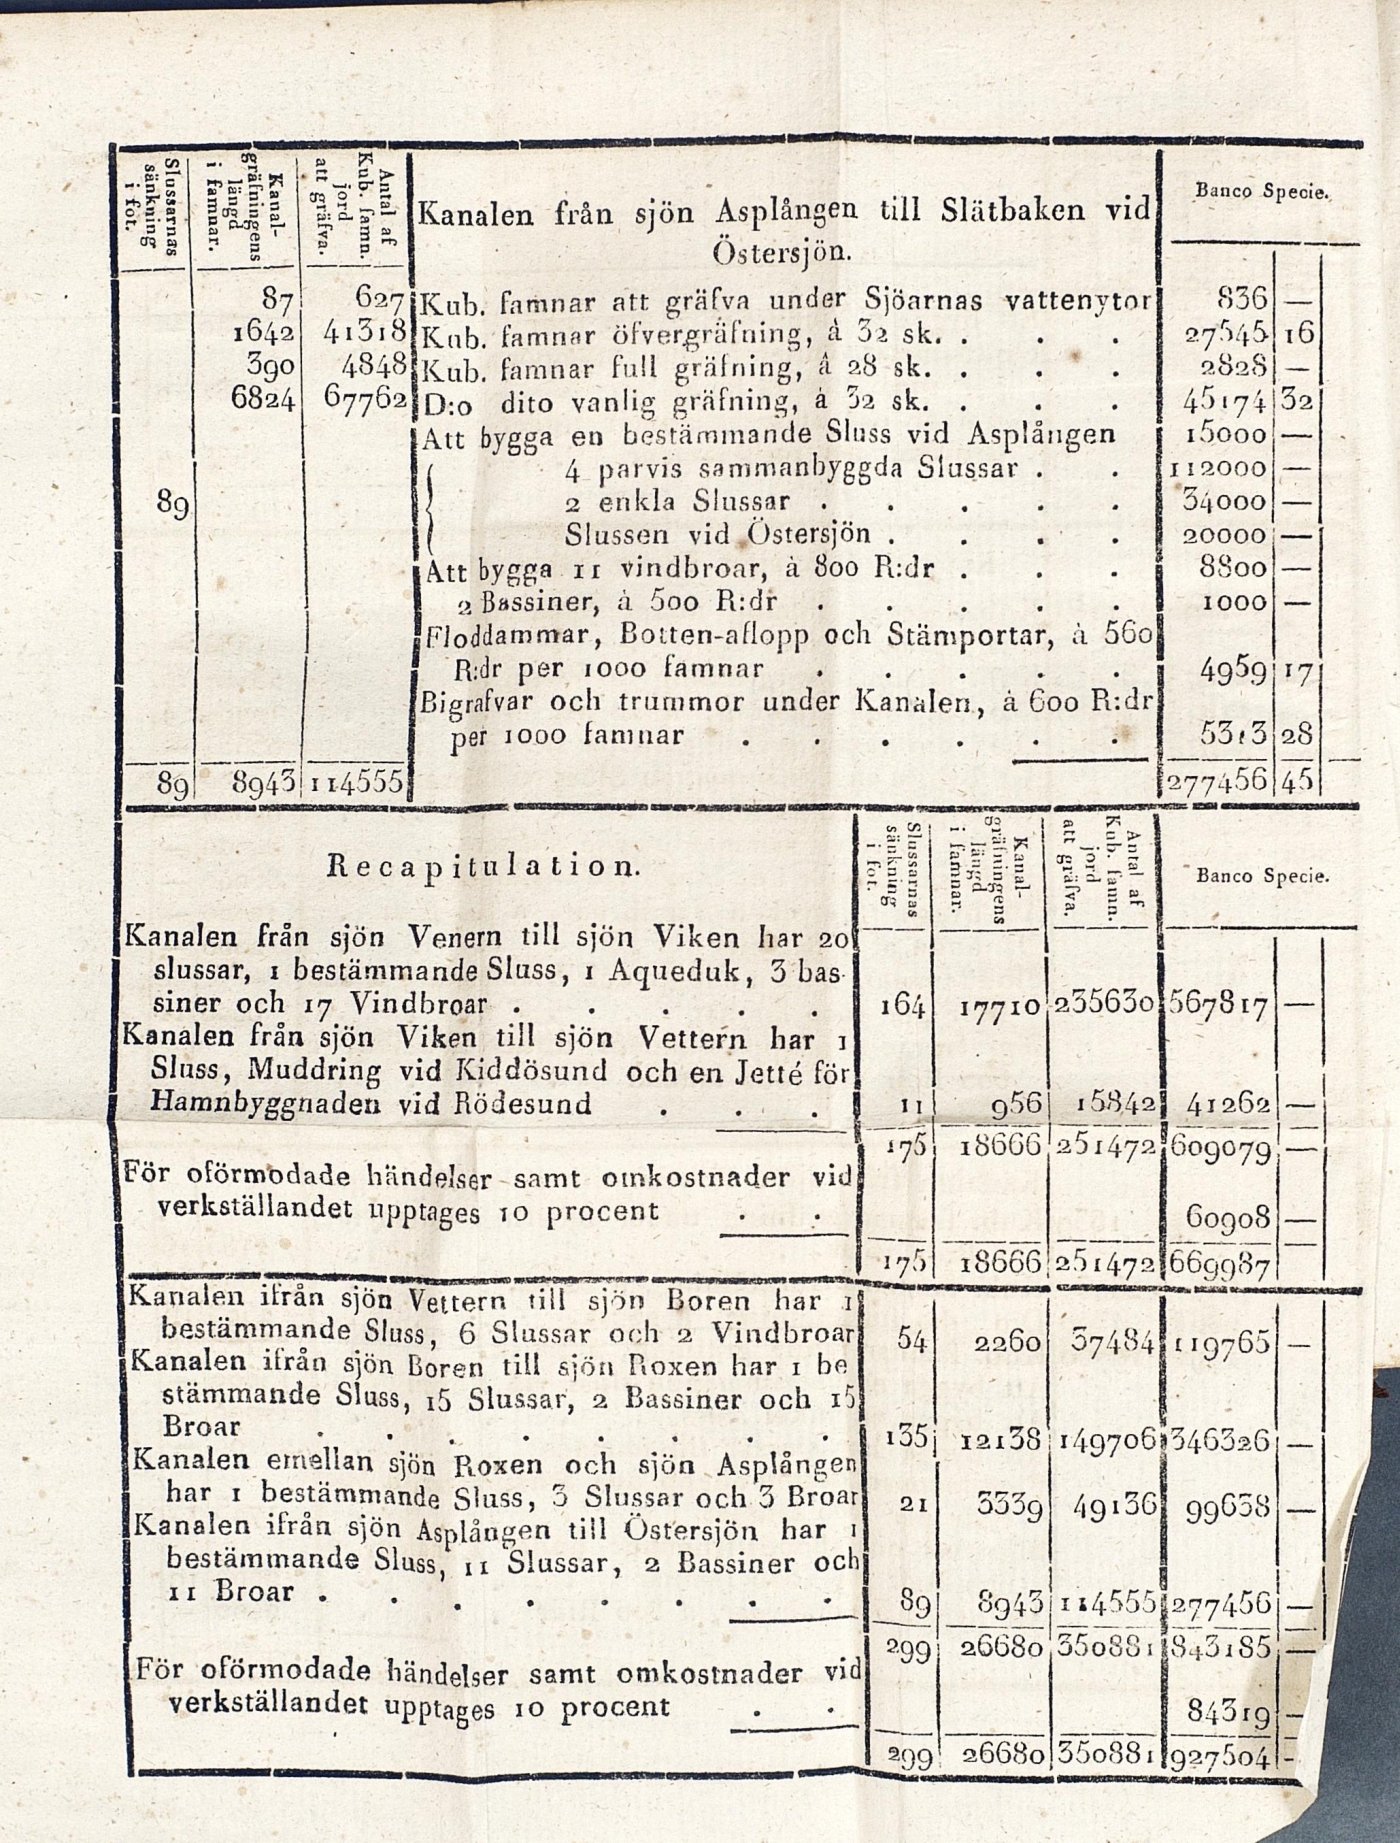 Slussarnas sänkning i fot. Kanal-gräfningens längd i famnar. Antal af Kub. famn. jord att gräfva. Kanalen från sjön Asplången till Slätbaken vid Banco Specie.
Östersjön.
87 627 Kub. famnar att gräfva under Sjöarnas vattenytor 836 —
1642 41318 Kub. famnar öfvergräfning, à 32 sk. . . . 27545 16
390 4848 Kub. famnar full gräfning, â 28 sk. . . . 2828 —
6824 67762 D:o dito vanlig gräfning, à 32 sk. . . . 45174 32
Att bygga en bestämmande Sluss vid Asplången 15000 —
4 parvis sammanbyggda Slussar . . 112000 —
89 2 enkla Slussar . . . . . 34000 —
Slussen vid Östersjön . . . . 20000 —
Att bygga 11 vindbroar, à 800 R:dr . . . 8800 —
2 Bassiner, à 500 R:dr . . . . . 1000 —
Floddammar, Botten-aflopp och Stämportar, à 560
R:dr per 1000 famnar . . . . . 4959 17
Bigrafvar och trummor under Kanalen, à 600 R:dr
per 1000 famnar . . . . . . 5313 28
89 8943 114555 277456 45
Recapitulation. Slussarnas sänkning i fot. Kanal-gräfningens längd i famnar. Antal af Kub. famn. jord att gräfva. Banco Specie.
Kanalen från sjön Venern till sjön Viken har 20
slussar, 1 bestämmande Sluss, 1 Aqueduk, 3 bas-
siner och 17 Vindbroar . . . . . 164 17710 235630 567817 —
Kanalen från sjön Viken till sjön Vettern har 1
Sluss, Muddring vid Kiddösund och en Jetté för
Hamnbyggnaden vid Rödesund . . . 11 956 15842 41262 —
175 18666 251472 609079 —
För oförmodade händelser samt omkostnader vid
verkställandet upptages 10 procent . . 60908 —
175 18666 251472 669987
Kanalen ifrån sjön Vettern till sjön Boren har 1
bestämmande Sluss, 6 Slussar och 2 Vindbroar 54 2260 37484 119765 —
Kanalen ifrån sjön Boren till sjön Roxen har 1 be
stämmande Sluss, 15 Slussar, 2 Bassiner och 15
Broar . . . . . . . . 135 12138 149706 346326 —
Kanalen emellan sjön Roxen och sjön Asplången
har 1 bestämmande Sluss, 3 Slussar och 3 Broar 21 3339 49136 99638 —
Kanalen ifrån sjön Asplången till Östersjön har 1
bestämmande Sluss, 11 Slussar, 2 Bassiner och
11 Broar . . . . . . . . 89 8943 114555 277456 —
299 26680 350881 843185 —
För oförmodade händelser samt omkostnader vid
verkställandet upptages 10 procent . . 84319 —
299 26680 350881 927504 -